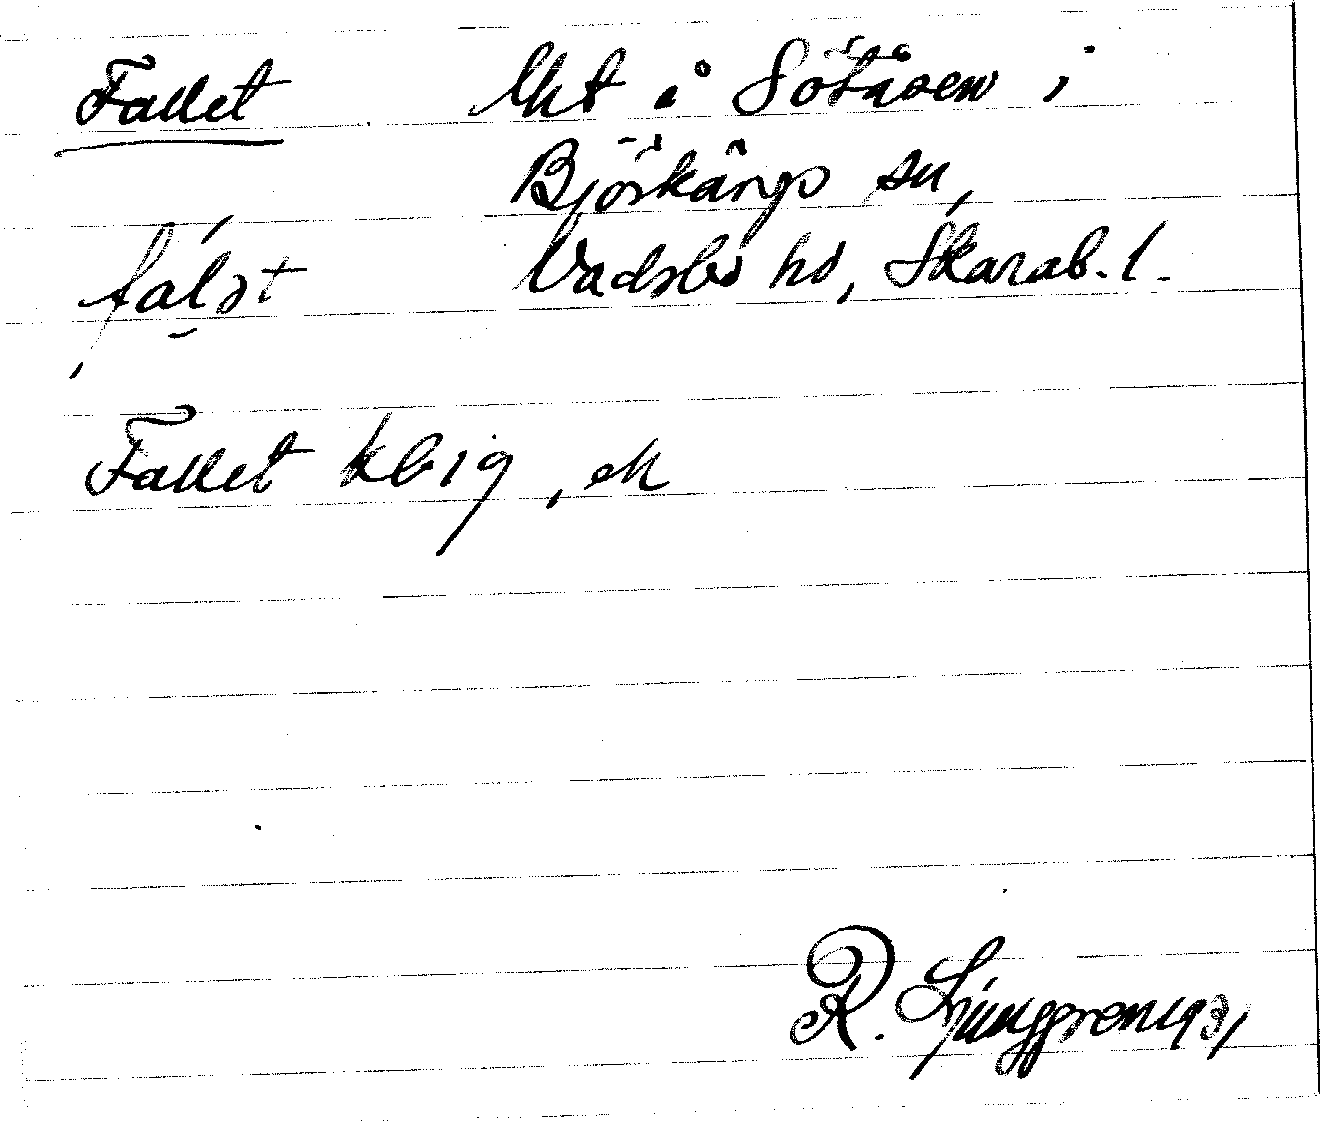 Fallet lht å Sötåsen i
Björkängs sn,
Vadsbo hd, Skarab. l.
fálæt
Fallet kbig, ek
R. Ljunggren 1931